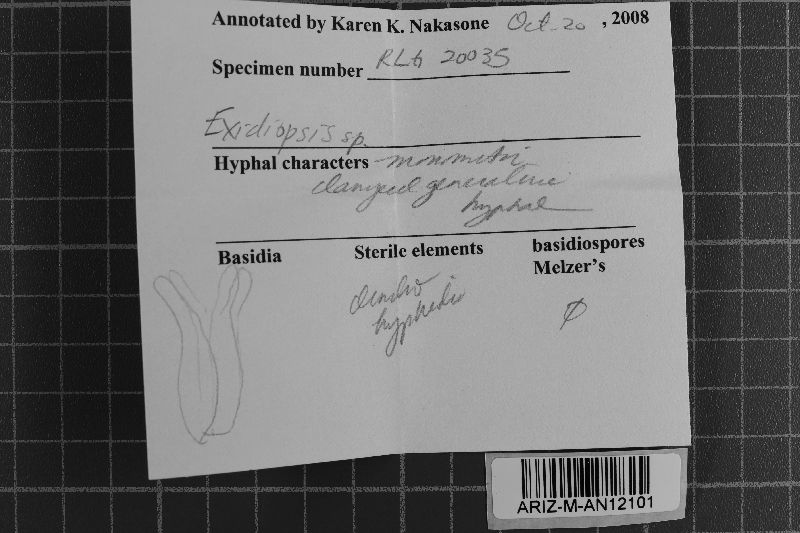 Annotated by Karen K. Nakasone Oct. 20, 2008
Specimen number RLG 20035
Exidiopsis sp.
Hyphal characters - monomitic
clamped generative
hyphae
Basidia Sterile elements basidiospores
Melzer's
dendro
hyphidia
Ø
ARIZ-M-AN12101